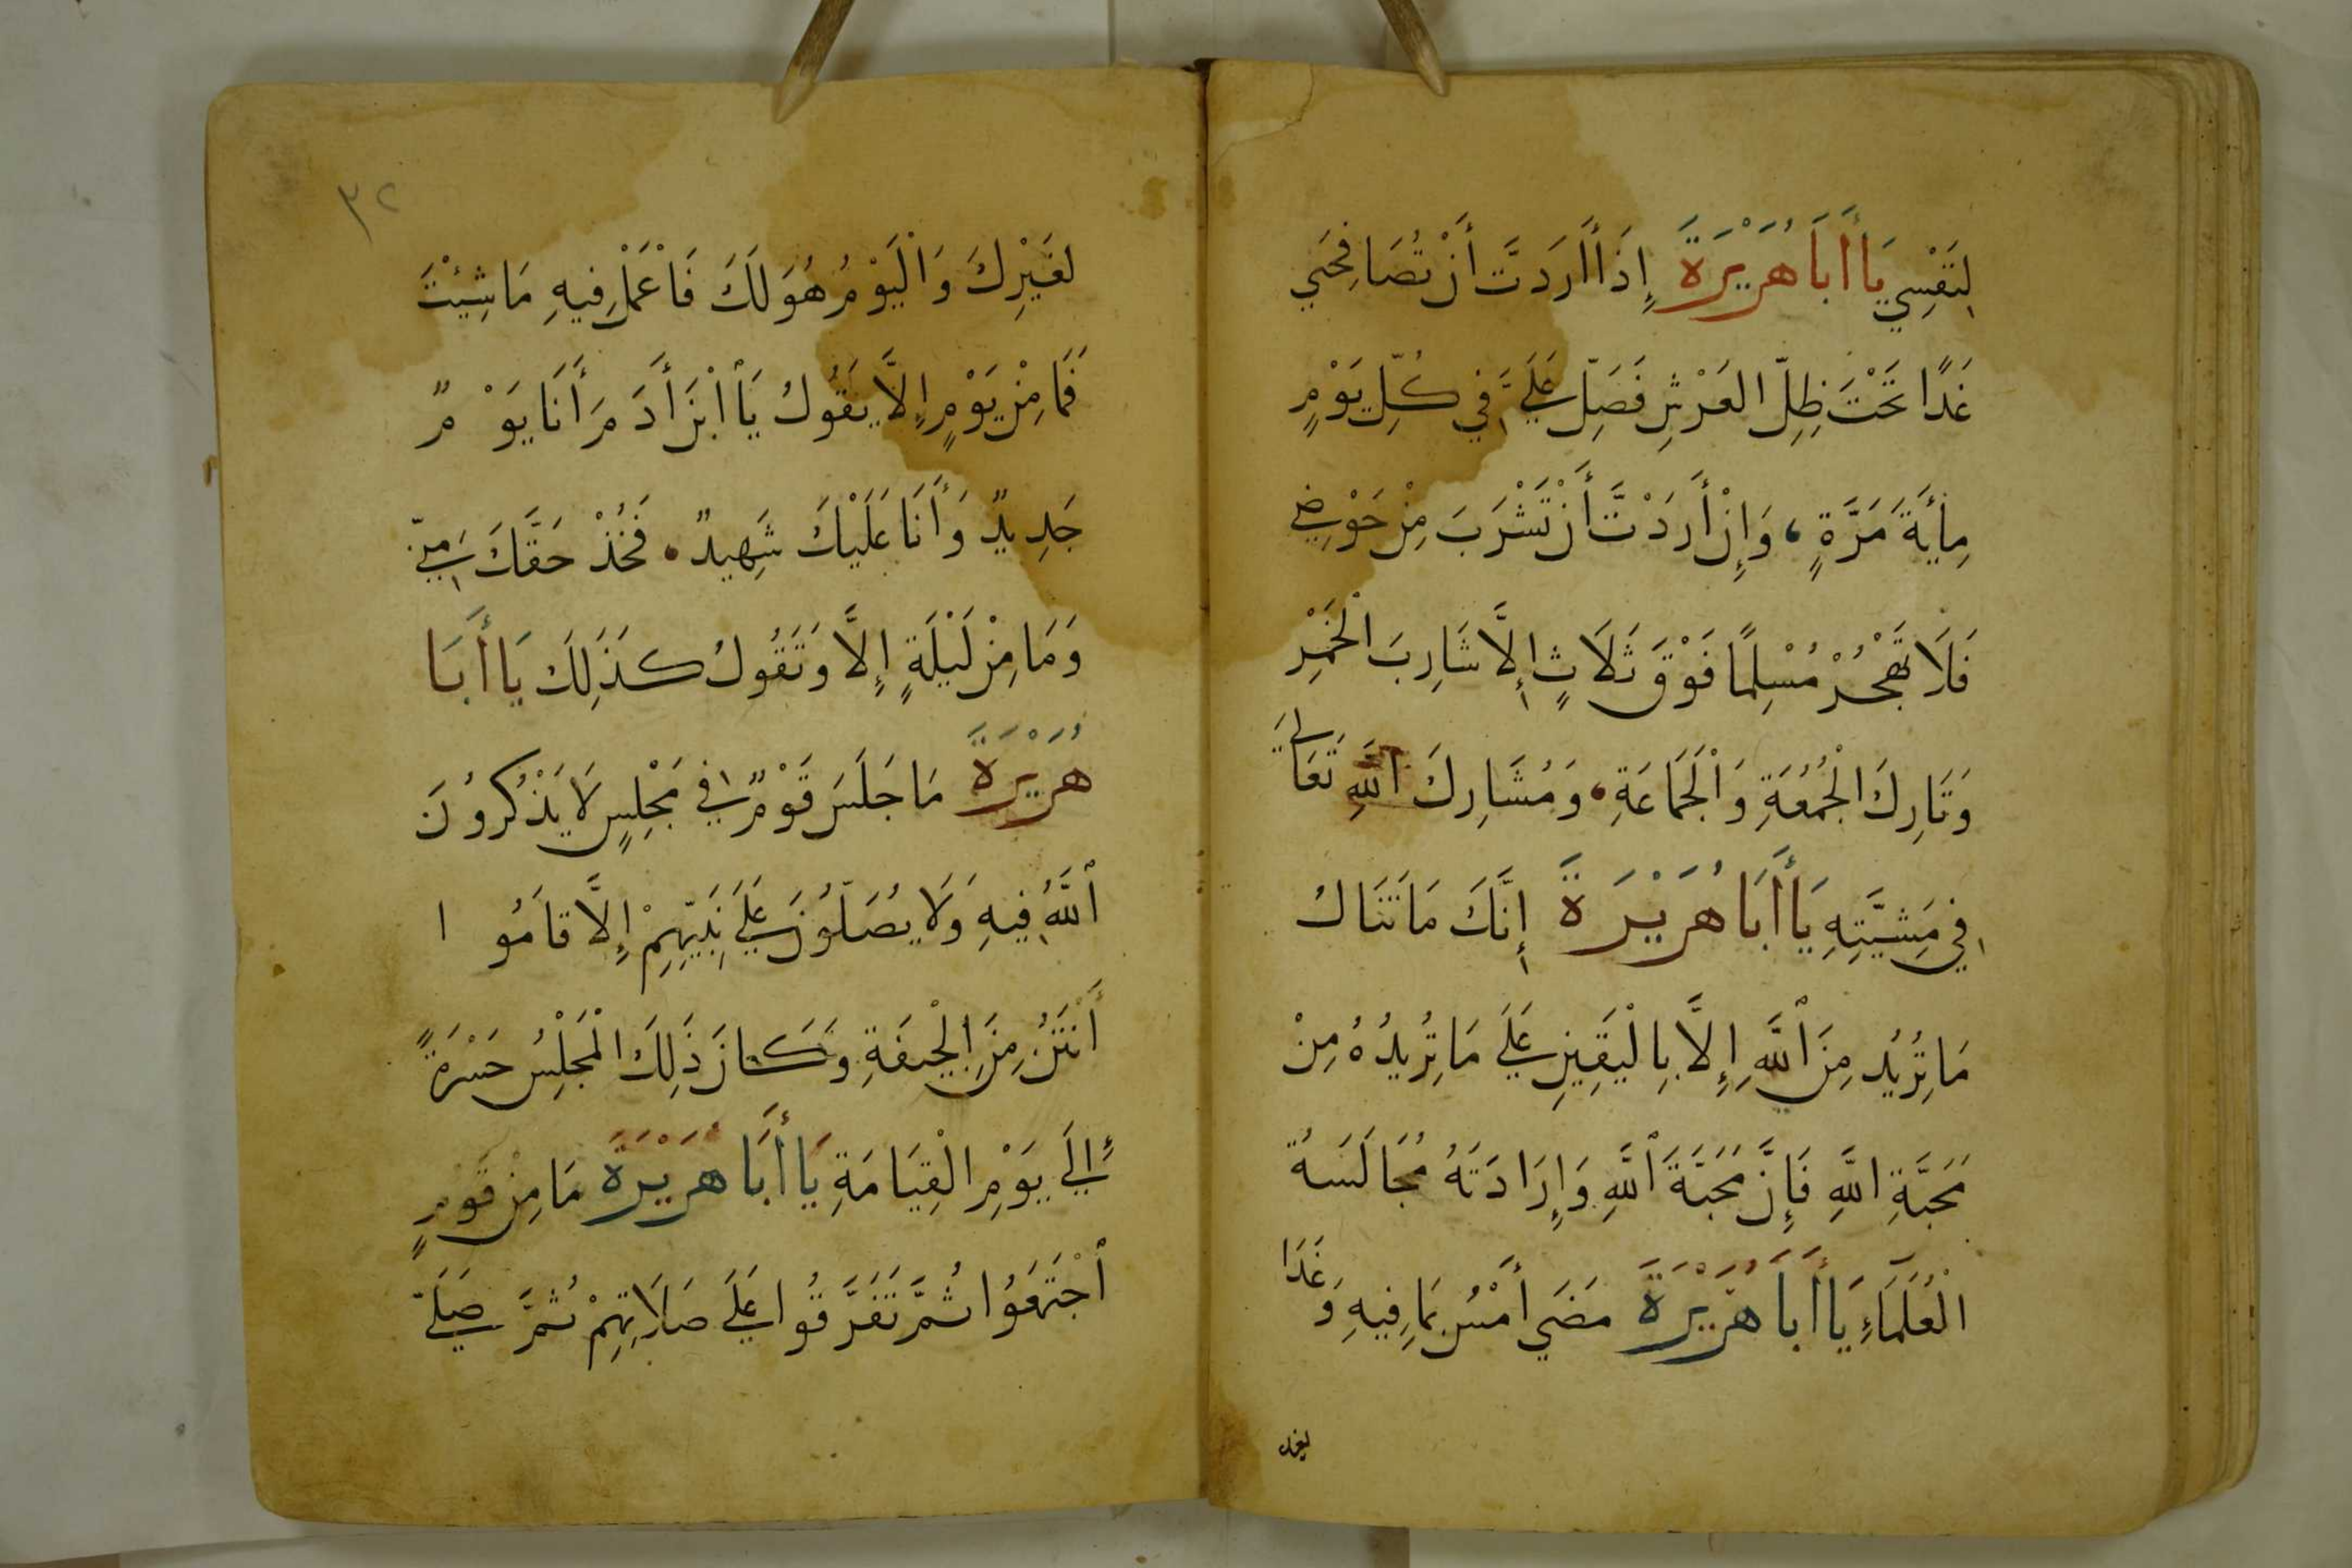 لِنَفْسِي يَا أَبَا هُرَيْرَةَ إِذَا أَرَدتَّ أَنْ تُصَافِحَنِي
غَدًا تَحْتَ ظِلِّ الْعَرْشِ فَصَلِّ عَلَيَّ فِي كُلِّ يَوْمٍ
مِائَةَ مَرَّةٍ، وَإِنْ أَرَدْتَّ أَنْ تَشْرَبَ مِنْ حَوْضِي
فَلَا تَهْجُرْ مُسْلِمًا فَوْقَ ثَلَاثٍ إِلَّا شَارِبَ الْخَمْرِ
وَتَارِكَ الْجُمُعَةِ وَالْجَمَاعَةِ. وَمُشَارِكَ اللَّهِ تَعَالَى
فِي مَشِيَّتِهِ يَا أَبَا هُرَيْرَةَ إِنَّكَ مَا تَنَالُ
مَا تُرِيْدُ مِنَ اللَّهِ إِلَّا بِالْيَقِينِ عَلَى مَا تُرِيدُهُ مِنْ
مَحَبَّةِ اللَّهِ فَإِنَّ مَحَبَّةَ اللَّهِ وَإِرَادَتَهُ مُجَالَسَةُ
الْعُلَمَاءِ يَا أَبَا هُرَيْرَةَ مَضَى أَمْسُ بِمَا فِيهِ وَغَدًا
لغيرك
٣٢
لِغَيْرِكَ وَالْيَوْمُ هُوَ لَكَ فَاعْمَلْ فِيهِ مَا شِئْتَ
فَمَا مِنْ يَوْمٍ إِلَّا يَقُولُ يَا ابْنَ أَدَمَ أَنَا يَوْمٌ
جَدِيدٌ وَأَنَا عَلَيْكَ شَهِيدٌ. فَخُذْ حَقَّكَ مِنِّي
وَمَا مِنْ لَيْلَةٍ إِلَّا وَتَقُولُ كَذَلِكَ يَا أَبَا
هُرَيْرَةَ مَا جَلَسَ قَوْمٌ فِي مَجْلِسٍ لَا يَذْكُرُونَ
اللَّهَ فِيهِ وَلَا يُصَلُّونَ عَلَى نَبِيِّهِمْ إِلَّا قَامُوا
أَنْتَنُ مِنَ الْجِيفَةِ وَكَانَ ذَلِكَ الْمَجْلِسُ حَسْرَةً
إِلَى يَوْمِ الْقِيَامَةِ يَا أَبَا هُرَيْرَةَ مَا مِنْ قَوْمٍ
اجْتَمَعُوا ثُمَّ تَفَرَّقُوا عَلَى صَلَاتِهِمْ ثُمَّ صَلَّى